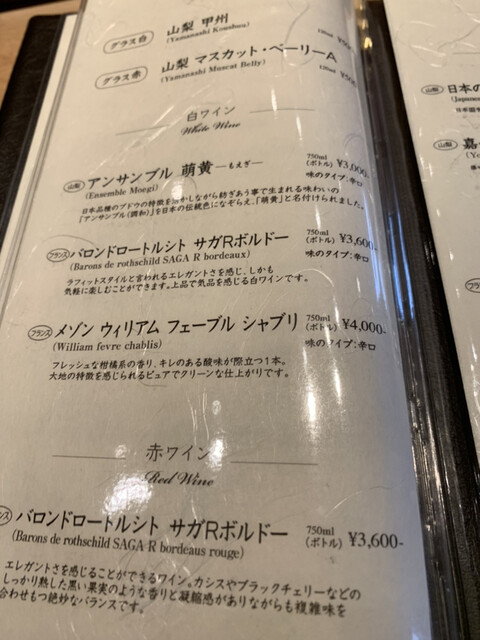 グラス白 山梨 甲州
(Yamanashi Koushuu) 120ml
グラス赤 山梨 マスカット・ベーリーA
(Yamanashi Muscat Belly) 120ml
白ワイン
White Wine
山梨 アンサンブル 萌黄 ―もえぎ― 750ml (ボトル) ¥3,000-
(Ensemble Moegi) 味のタイプ:辛口
日本品種のブドウの特徴を活かしながら紡ぎあう事で生まれる味わいの
「アンサンブル(調和)」を日本の伝統色になぞらえ、「萌黄」と名付けられました。
フランス バロンドロートルシト サガRボルドー 750ml (ボトル) ¥3,600-
(Barons de rothschild SAGA R bordeaux) 味のタイプ:辛口
ラフィットスタイルと言われるエレガントさを感じ、しかも
気軽に楽しむことができます。上品で気品を感じる白ワインです。
フランス メゾン ウィリアム フェーブル シャブリ 750ml (ボトル) ¥4,000-
(William fevre chablis) 味のタイプ:辛口
フレッシュな柑橘系の香り、キレのある酸味が際立つ1本。
大地の特徴を感じられるピュアでクリーンな仕上がりです。
赤ワイン
Red Wine
ンス バロンドロートルシト サガRボルドー 750ml (ボトル) ¥3,600-
(Barons de rothschild SAGA R bordeaus rouge)
エレガントさを感じることができるワイン。カシスやブラックチェリーなどの
しっかり熟した黒い果実のような香りと凝縮感がありながらも複雑味を
合わせもつ絶妙なバランスです。
山梨 日本の
(Japanese
山梨 嘉
フランス